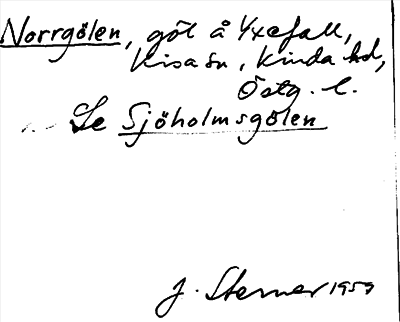 Norrgölen, göl å Yxefall,
Kisa sn, Kinda hd,
Östg. l.
Se Sjöholmsgölen
J. Sterner 1959